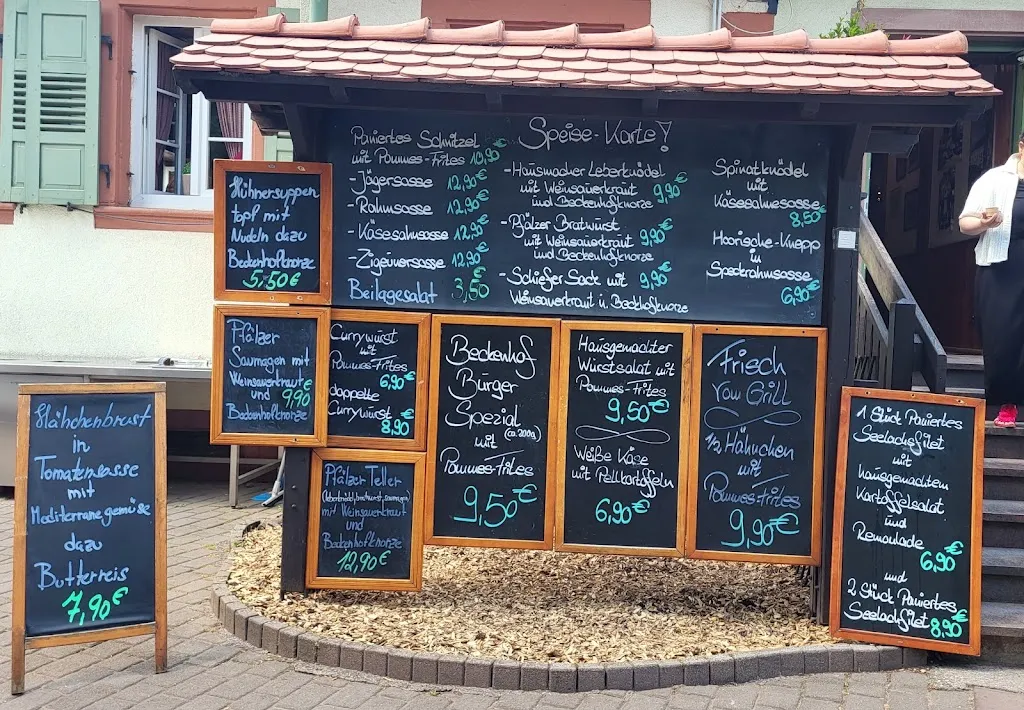 Speise-Karte!
Paniertes Schnitzel
mit Pommes-Frites 10,90€
-Jägersasse 12,90€
-Rahmsasse 12,90€
-Käsesahnsasse 12,90€
-Zigeunersasse 12,90€
Beilagesalat 3,50€
-Hausmacher Leberknödel
mit Weinsauerkraut 9,90€
und Beckenhofknorze
-Pfälzer Bratwurst
mit Weinsauerkraut 9,90€
und Beckenhofknorze
-Schiefer Sack mit 9,90€
Weinsauerkraut u. Beckhofknorze
Spinatknödel
mit
Käsesahnesasse
8,50€
Hoorische-Knepp
in
Speckrahmsasse
6,90€
Hühnersuppen
topf mit
Nudeln dazu
Beckenhofknorze
5,50€
Pfälzer
Saumagen mit
Weinsauerkraut
und 9,90€
Beckenhofknorze
Currywurst
mit
Pommes-Frites
6,90€
doppelte
Currywurst
8,90€
Pfälzer Teller
(leberknödel, bratwurst, saumagen)
mit Weinsauerkraut
und
Beckenhofknorze
12,90€
Beckenhof
Burger
Spezial
mit (ca. 200g)
Pommes-Frites
9,50€
Hausgemachter
Wurstsalat mit
Pommes-Frites
9,50€
Weiße Käse
mit Pellkartoffeln
6,90€
Frisch
Vom Grill
1/2 Hähnchen
mit
Pommes-Frites
9,90€
Hähchenbrust
in
Tomatensasse
mit
Mediterranegemüse
dazu
Butterreis
7,90€
1 Stück Paniertes
Seelachsfilet
mit
hausgemachtem
Kartoffelsalat
und
Remoulade
6,90€
und
2 Stück Paniertes
Seelachsfilet 8,90€